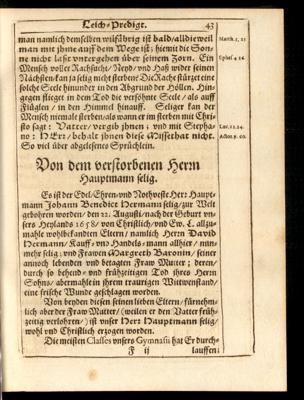 Leich-Predigt. 43
man namlich demselben wilfährig ist bald/alldieweil
man mit ihme auff dem Wege ist; hiemit die Son-
ne nicht lasse untergehen über seinem Zorn. Ein
Mensch voller Rachsucht/ Neyd/ und Haß wider seinen
Nächsten/kan ja selig nicht sterben: Die Rache stürtzet eine
solche Seele hinunder in den Abgrund der Höllen. Hin-
gegen fliegt in dem Tod die versöhnte Seele/ als auff
Flüglen/ in den Himmel hinauff. Seliger kan der
Mensch niemals sterben/als wann er im sterben mit Chri-
sto sagt: Vatter/ vergib ihnen; und mit Stepha-
no: HErr/ behalt ihnen diese Missethat nicht.
So viel über abgelesenes Sprüchlein.
Matth. 5, 25
Ephes. 4. 26.
Luc. 23.34.
Actor. 7. 60.
Von dem verstorbenen Herrn
Hauptmann selig.
Es ist der Edel/Ehren-und Nothveste Herr Haupt-
mann Johann Benedict Hermann selig/zur Welt
gebohren worden/ den 22. Augusti/nach der Geburt un-
sers Heylands 1658/ von Christlich/und Ew. L. allzu-
mahle wohlbekandten Eltern/ namlich Herrn David
Hermann/ Kauff- und Handels-mann allhier/ nun-
mehr selig/ und Frawen Margreth Baronin/ seiner
annoch lebenden und betagten Fraw Mutter; deren/
durch so behend- und frühzeitigen Tod ihres Herrn
Sohns/ abermahle in ihrem traurigen Wittwenstand/
eine frische Wunde geschlagen worden.
Von beyden diesen seinen lieben Eltern/ fürnehm-
lich aber der Fraw Mutter/ (weilen er den Vatter früh-
zeitig verlohren/) ist unser Herr Hauptmann selig/
wohl und Christlich erzogen worden.
Die meisten Classes unsers Gymnasii hat Er durch-
F ij lauffen: